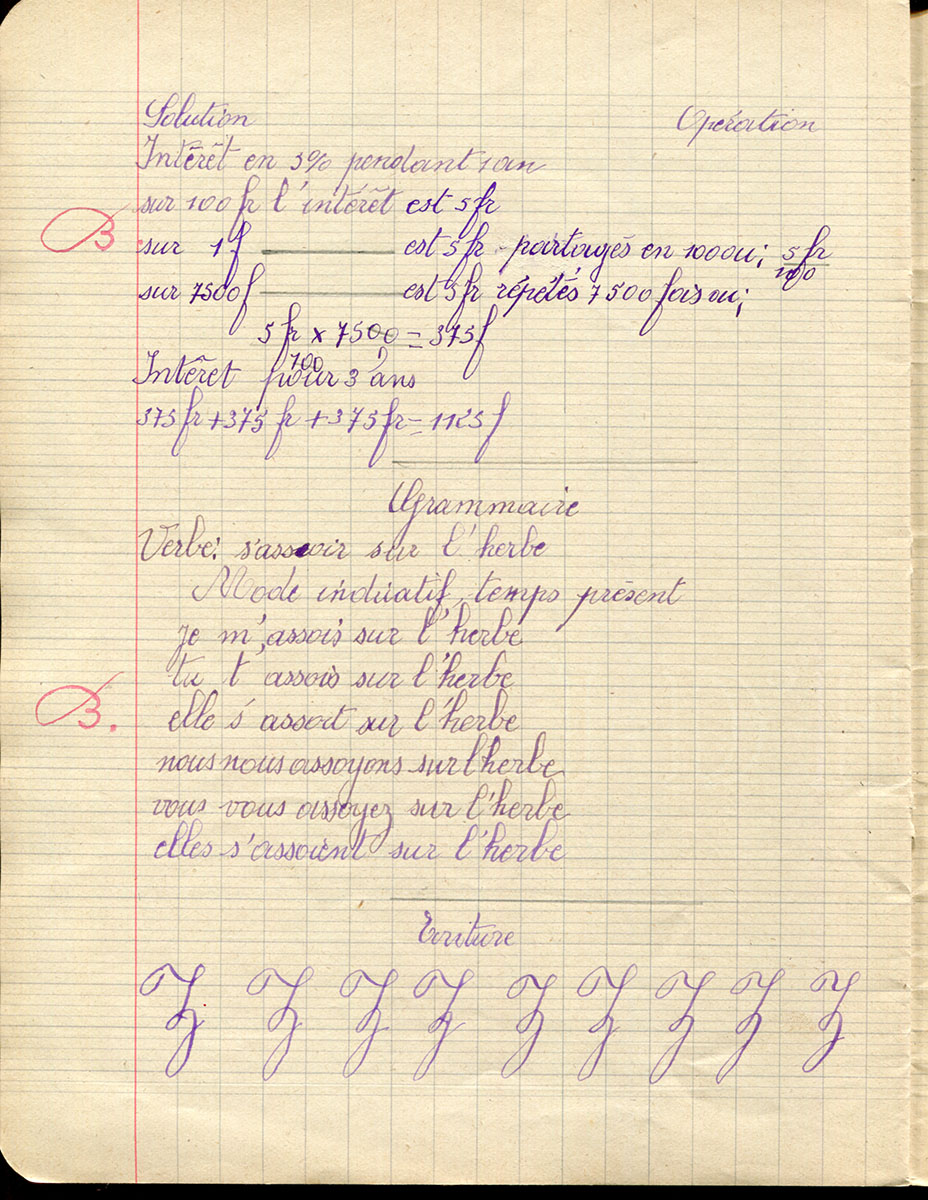 Solution Opération
Intérêt en 5% pendant 1 an
sur 100 fr l'intérêt est 5 fr
B sur 1 f ——— est 5 fr partagés en 100 ou; 5 fr
100
sur 7500 f ——— est 5 fr répétés 7500 fois ou;
5 fr x 7500 = 375 f
100
Intêret pour 3 ans
375 fr + 375 fr + 375 fr = 1125 f
Grammaire
Verbe: s'asseoir sur l'herbe
Mode indicatif, temps présent
je m'assois sur l'herbe
tu t'assois sur l'herbe
B. elle s'assoit sur l'herbe
nous nous assoyons sur l'herbe
vous vous assoyez sur l'herbe
elles s'assoient sur l'herbe
Ecriture
Z Z Z Z Z Z Z Z Z